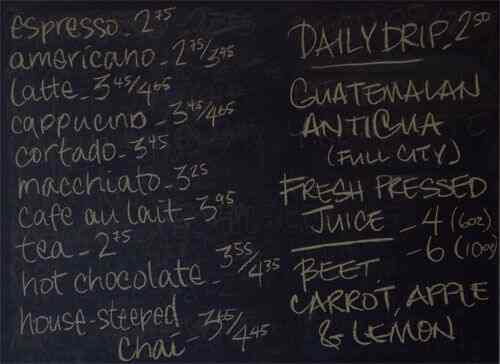 espresso - 2 75
americano - 2 75/3 45
latte - 3 45/4 65
cappucino - 3 45/4 65
cortado - 3 45
macchiato - 3 25
cafe au lait - 3 95
tea - 2 75
hot chocolate - 3 55/4 35
house-steeped
chai - 3 45/4 45
DAILY DRIP. 2 50
GUATEMALAN
ANTIGUA
(FULL CITY)
FRESH PRESSED
JUICE - 4 (6oz)
- 6 (10oz)
BEET,
CARROT, APPLE
& LEMON